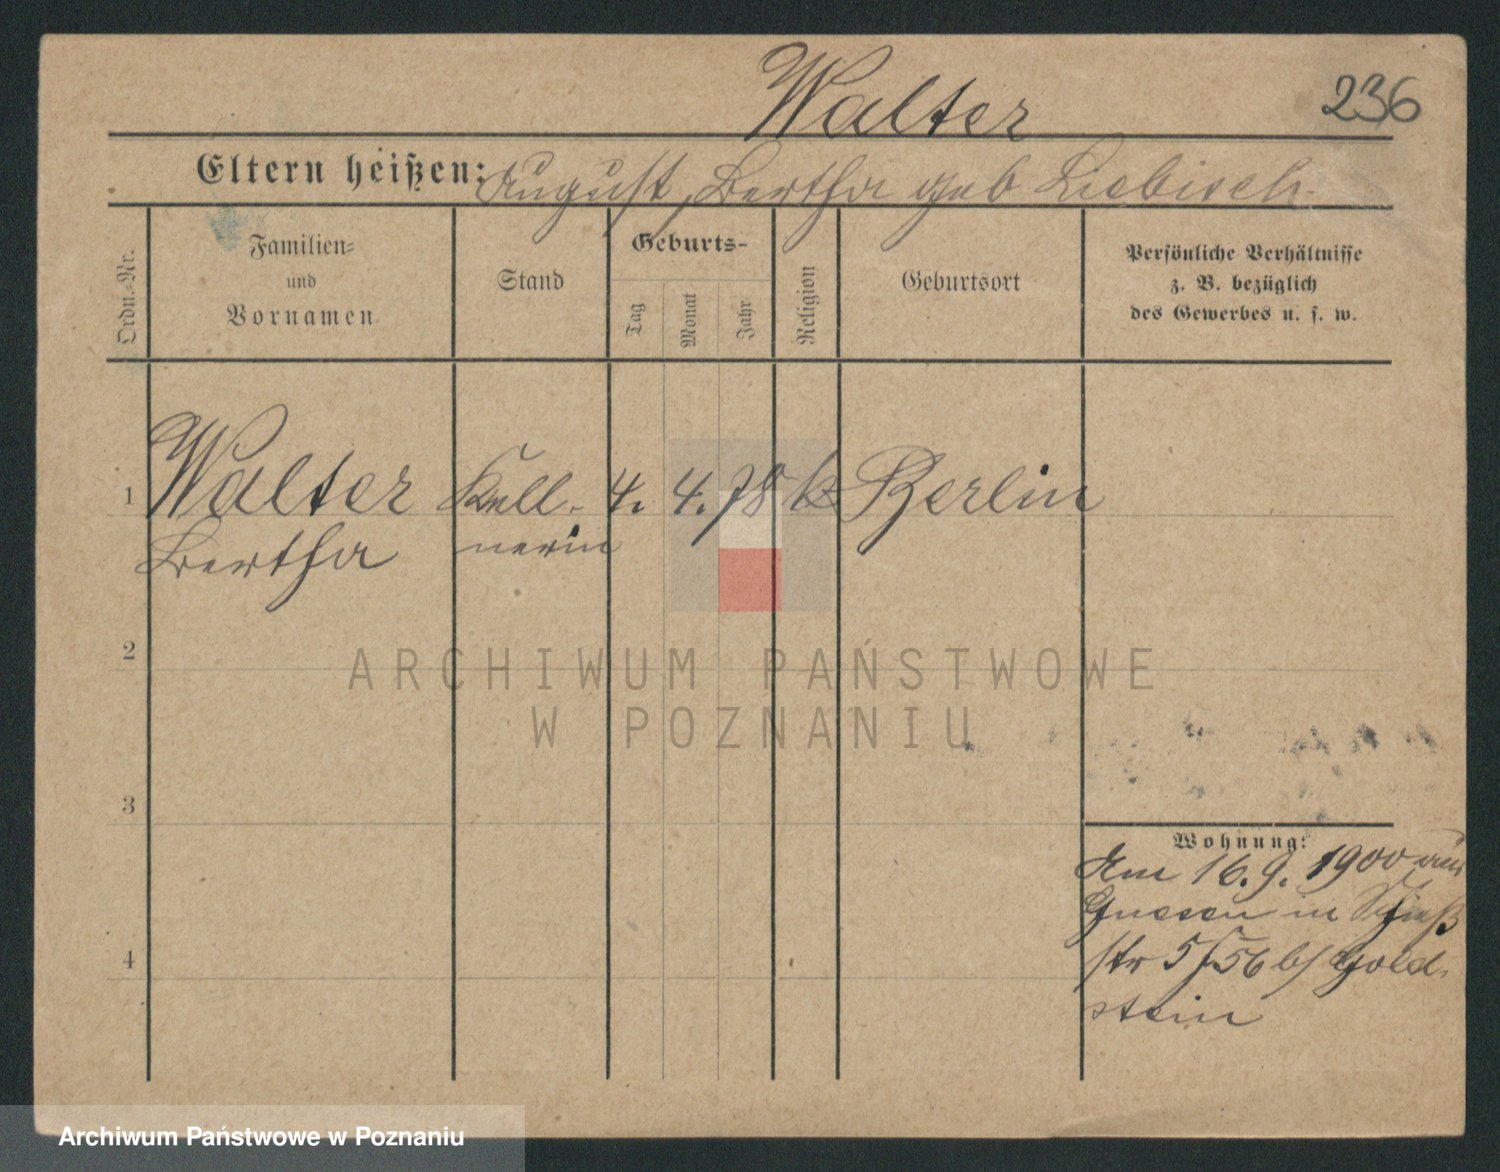 Walter
236
Eltern heißen: August, Bertha geb Liebisch
Ordn.-Nr.
Familien-
und
Vornamen
Stand
Geburts-
Tag
Monat
Jahr
Religion
Geburtsort
Persönliche Verhältnisse
z. B. bezüglich
des Gewerbes u. s. w.
1 Walter Kell- 4. 4. 78 Berlin
Bertha nerin
2
3
4
Wohnung:
Am 16.9. 1900 aus
Gnesen in
str 5/56 b/ Gold-
stein
ARCHIWUM PAŃSTWOWE
W POZNANIU
Archiwum Państwowe w Poznaniu